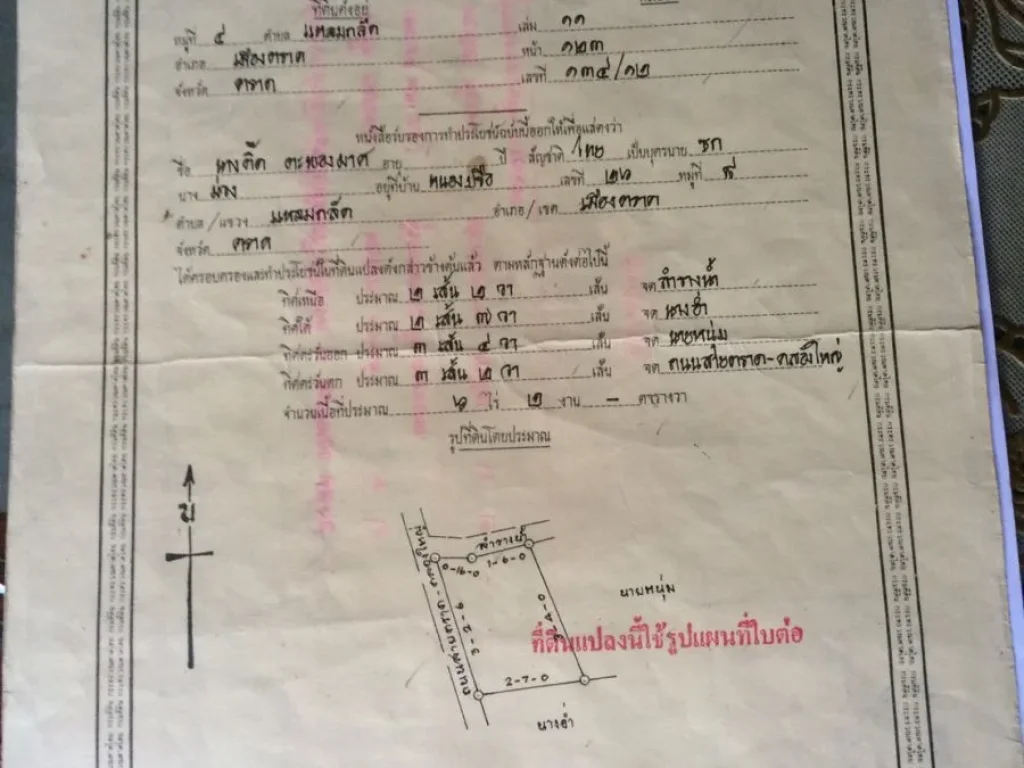 ที่ดินตั้งอยู่
หมู่ที่ ๔ ตำบล แหลมกลัด เล่ม ๑๑
อำเภอ เมืองตราด หน้า ๑๒๓
จังหวัด ตราด เลขที่ ๑๓๔/๑๒
หนังสือรับรองการทำประโยชน์ฉบับนี้ออกให้เพื่อแสดงว่า
ชื่อ อายุ ปี สัญชาติ ไทย เป็นบุตรนาย
นาง อยู่ที่บ้าน เลขที่ ๒๖ หมู่ที่
ตำบล/แขวง แหลมกลัด อำเภอ/เขต เมืองตราด
จังหวัด ตราด
ได้ครอบครองและทำประโยชน์ในที่ดินแปลงดังกล่าวข้างต้นแล้ว ตามหลักฐานดังต่อไปนี้
ทิศเหนือ ประมาณ ๒ เส้น ๒ วา เส้น จด ลำรางน้ำ
ทิศใต้ ประมาณ ๒ เส้น ๗ วา เส้น จด นางอ่ำ
ทิศตะวันออก ประมาณ ๓ เส้น ๔ วา เส้น จด นายหนุ่ม
ทิศตะวันตก ประมาณ ๓ เส้น ๒ วา เส้น จด ถนนสายตราด-คลองใหญ่
จำนวนเนื้อที่ประมาณ ๖ ไร่ ๒ งาน - ตารางวา
รูปที่ดินโดยประมาณ
น
ลำรางน้ำ
0-16-0 1-6-0
ถนนสายตราด-คลองใหญ่
3-2-6
3-4-0
นายหนุ่ม
ที่ดินแปลงนี้ใช้รูปแผนที่ใบต่อ
2-7-0
นางอ่ำ